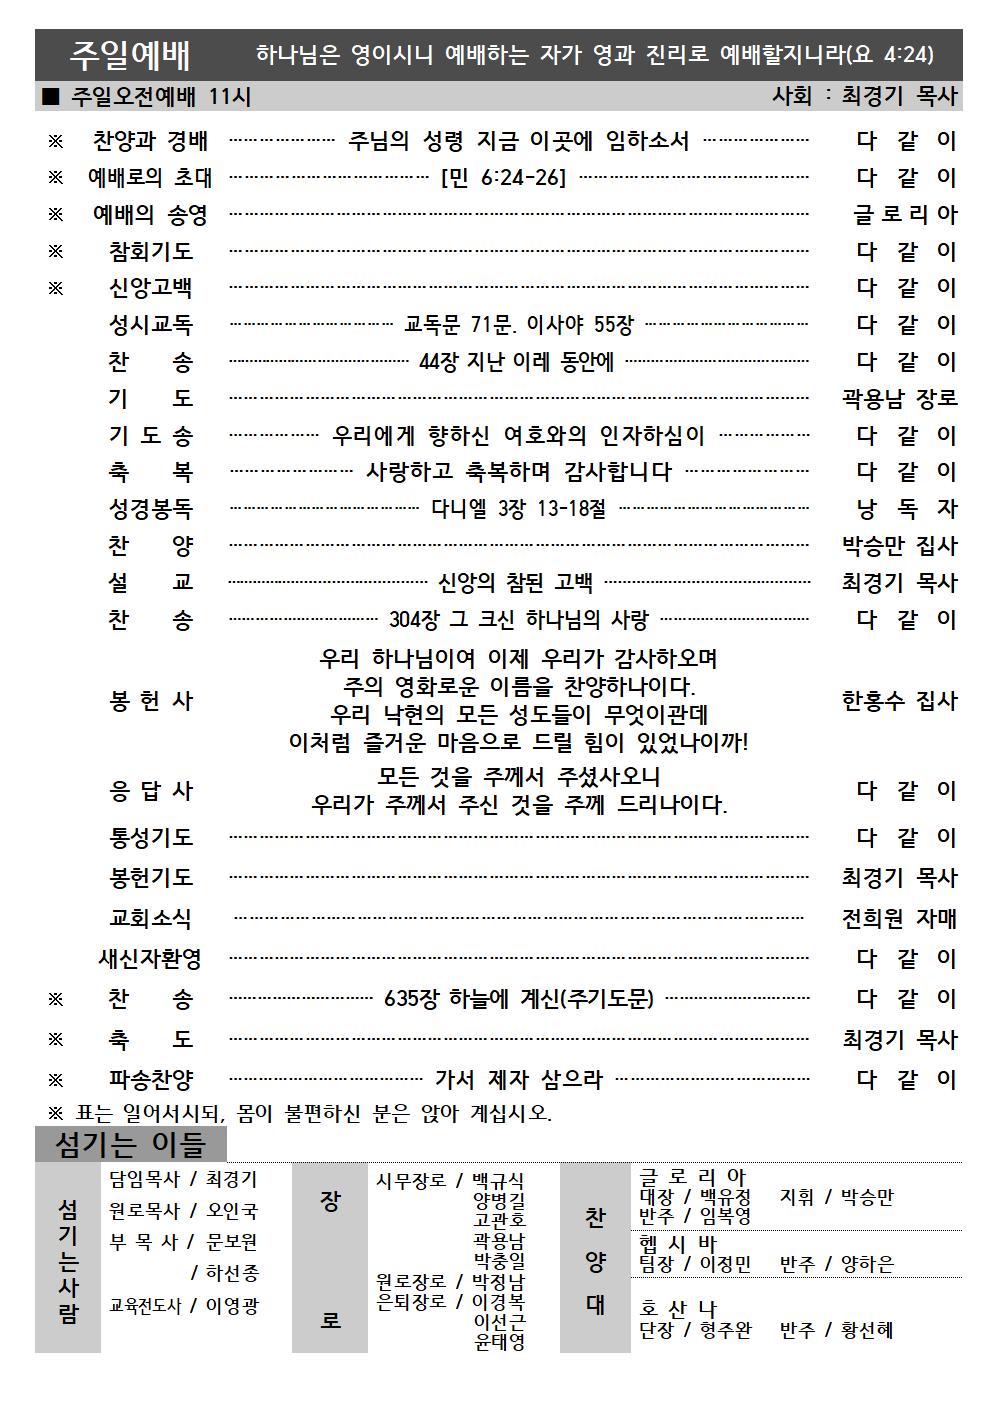 주일예배 하나님은 영이시니 예배하는 자가 영과 진리로 예배할지니라(요 4:24)
■ 주일오전예배 11시 사회 : 최경기 목사
※ 찬양과 경배 ⋯⋯⋯⋯ 주님의 성령 지금 이곳에 임하소서 ⋯⋯⋯⋯ 다 같 이
※ 예배로의 초대 ⋯⋯⋯⋯ [민 6:24-26] ⋯⋯⋯⋯ 다 같 이
※ 예배의 송영 ⋯⋯⋯⋯ 글 로 리 아
※ 참회기도 ⋯⋯⋯⋯ 다 같 이
※ 신앙고백 ⋯⋯⋯⋯ 다 같 이
성시교독 ⋯⋯⋯⋯ 교독문 71문. 이사야 55장 ⋯⋯⋯⋯ 다 같 이
찬 송 ⋯⋯⋯⋯ 44장 지난 이레 동안에 ⋯⋯⋯⋯ 다 같 이
기 도 ⋯⋯⋯⋯ 곽용남 장로
기 도 송 ⋯⋯⋯⋯ 우리에게 향하신 여호와의 인자하심이 ⋯⋯⋯⋯ 다 같 이
축 복 ⋯⋯⋯⋯ 사랑하고 축복하며 감사합니다 ⋯⋯⋯⋯ 다 같 이
성경봉독 ⋯⋯⋯⋯ 다니엘 3장 13-18절 ⋯⋯⋯⋯ 낭 독 자
찬 양 ⋯⋯⋯⋯ 박승만 집사
설 교 ⋯⋯⋯⋯ 신앙의 참된 고백 ⋯⋯⋯⋯ 최경기 목사
찬 송 ⋯⋯⋯⋯ 304장 그 크신 하나님의 사랑 ⋯⋯⋯⋯ 다 같 이
우리 하나님이여 이제 우리가 감사하오며
주의 영화로운 이름을 찬양하나이다.
봉 헌 사 한홍수 집사
우리 낙현의 모든 성도들이 무엇이관데
이처럼 즐거운 마음으로 드릴 힘이 있었나이까!
모든 것을 주께서 주셨사오니
응 답 사 다 같 이
우리가 주께서 주신 것을 주께 드리나이다.
통성기도 ⋯⋯⋯⋯ 다 같 이
봉헌기도 ⋯⋯⋯⋯ 최경기 목사
교회소식 ⋯⋯⋯⋯ 전희원 자매
새신자환영 ⋯⋯⋯⋯ 다 같 이
※ 찬 송 ⋯⋯⋯⋯ 635장 하늘에 계신(주기도문) ⋯⋯⋯⋯ 다 같 이
※ 축 도 ⋯⋯⋯⋯ 최경기 목사
※ 파송찬양 ⋯⋯⋯⋯ 가서 제자 삼으라 ⋯⋯⋯⋯ 다 같 이
※ 표는 일어서시되, 몸이 불편하신 분은 앉아 계십시오.
섬기는 이들
섬기는사람
담임목사 / 최경기
원로목사 / 오인국
부 목 사 / 문보원
/ 하선종
교육전도사 / 이영광
장 로
시무장로 / 백규식
양병길
고관호
곽용남
박충일
원로장로 / 박정남
은퇴장로 / 이경복
이선근
윤태영
찬양대
글 로 리 아
대장 / 백유정 지휘 / 박승만
반주 / 임복영
헵 시 바
팀장 / 이정민 반주 / 양하은
호 산 나
단장 / 형주완 반주 / 황선혜